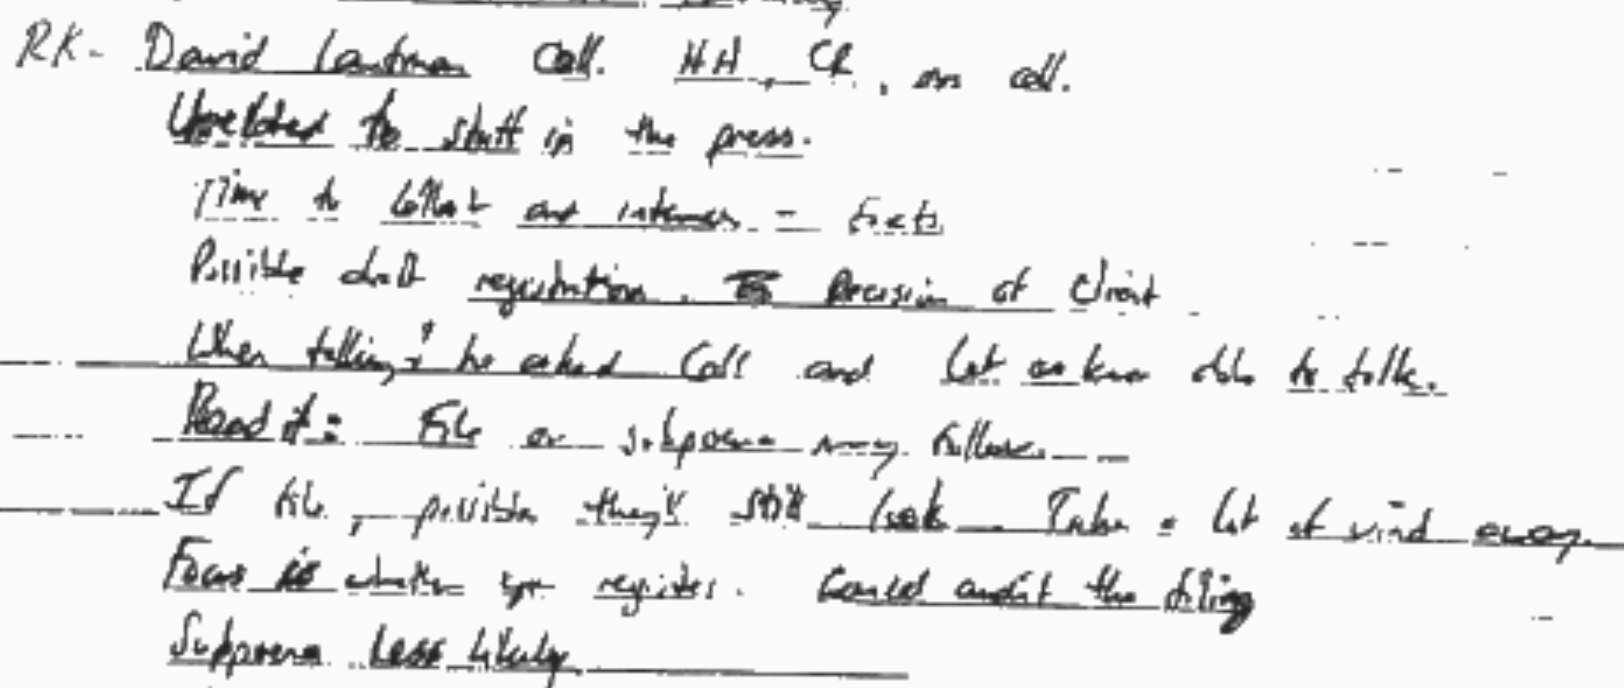 RK- David Laufman Call. HH, CR, on call.
Unrelated to stuff in the press.
Time to collect and interview - facts
Possible draft registration. Decision of Client
When talking, he asked Call and let us know able to talk.
Read it: File or subpoena may follow.
If file, possible they'll still look. Takes a lot of wind away.
Focus is whether you register. Could audit the filing
Subpoena less likely